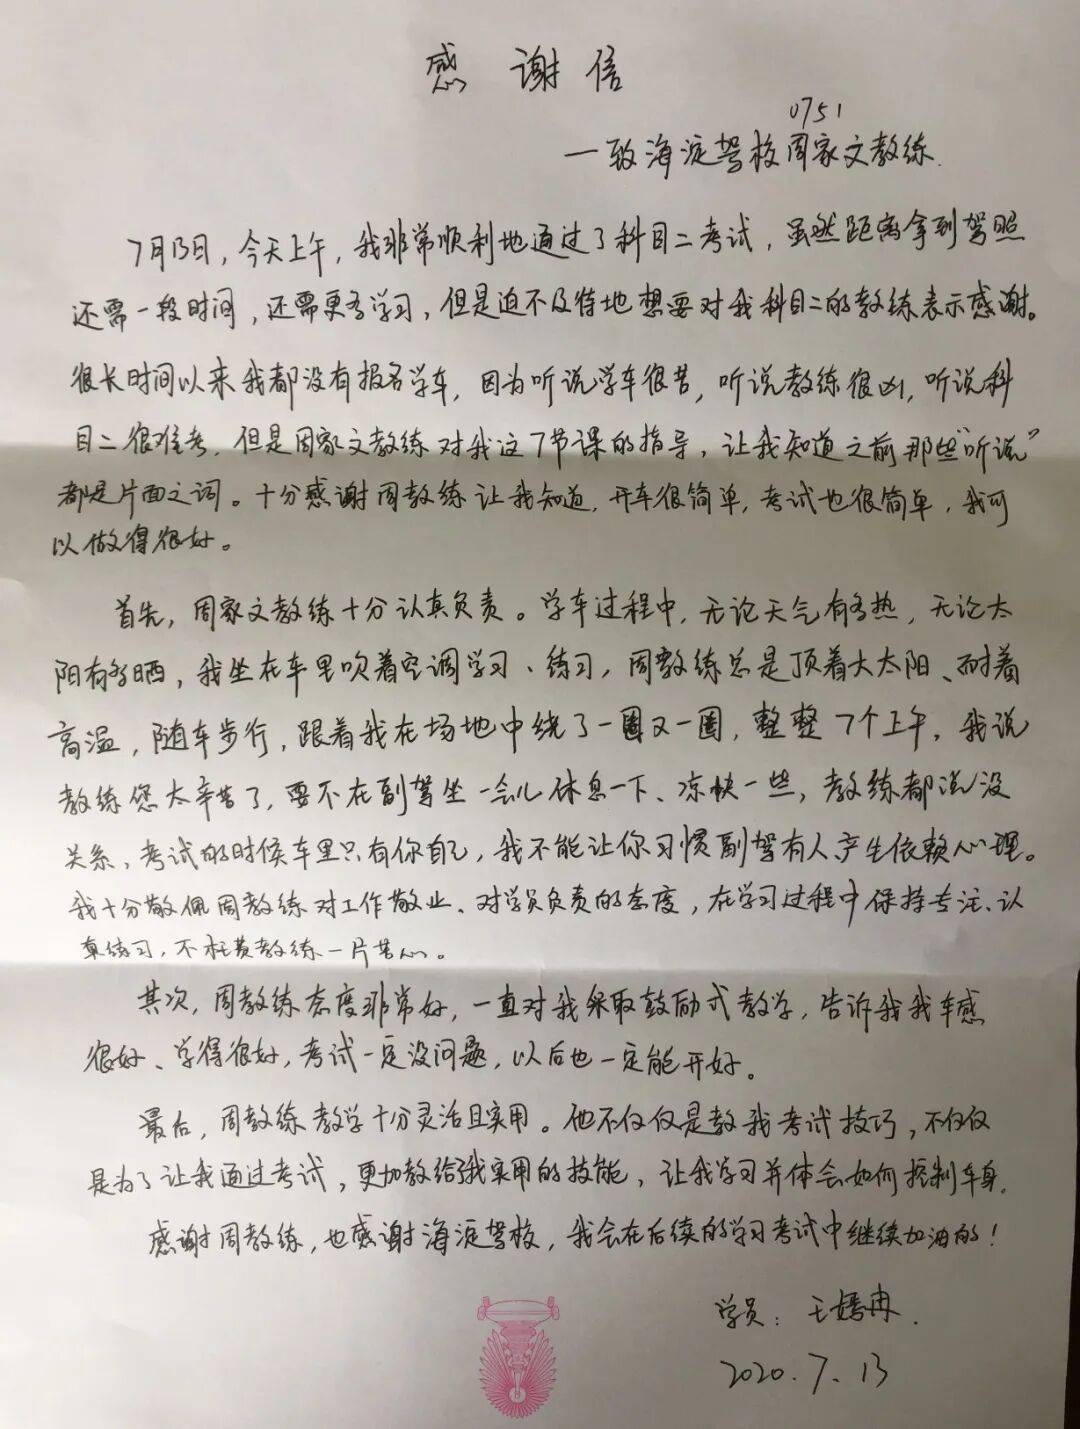 感 谢 信
0751
一致海淀驾校周家文教练.
7月13日,今天上午,我非常顺利地通过了科目二考试,虽然距离拿到驾照
还需一段时间,还需更多学习,但是迫不及待地想要对我科目二的教练表示感谢。
很长时间以来我都没有报名学车,因为听说学车很苦,听说教练很凶,听说科
目二很难考.但是周家文教练对我这7节课的指导,让我知道之前那些“听说”
都是片面之词。十分感谢周教练让我知道,开车很简单,考试也很简单,我可
以做得很好。
首先,周家文教练十分认真负责。学车过程中,无论天气有多热,无论太
阳有多晒,我坐在车里吹着空调学习、练习,周教练总是顶着大太阳、耐着
高温,随车步行,跟着我在场地中绕了一圈又一圈,整整7个上午,我说
教练您太辛苦了,要不在副驾坐一会儿休息一下、凉快一些,教练都说没
关系,考试的时候车里只有你自己,我不能让你习惯副驾有人,产生依赖心理。
我十分敬佩周教练对工作敬业、对学员负责的态度,在学习过程中保持专注、认
真练习,不枉费教练一片苦心。
其次,周教练态度非常好,一直对我采取鼓励式教学,告诉我我车感
很好、学得很好,考试一定没问题,以后也一定能开好。
最后,周教练教学十分灵活且实用。他不仅仅是教我考试技巧,不仅仅
是为了让我通过考试,更加教给了我实用的技能,让我学习并体会如何控制车身.
感谢周教练,也感谢海淀驾校,我会在后续的学习考试中继续加油的!
学员: 王嫱冉.
2020.7.13